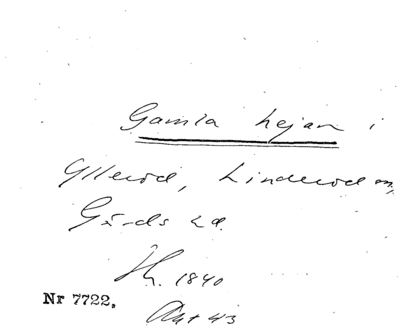 Gamla Lejan i
Yllerod, Linderod sn,
Gärds hd.
1840
Nr 7722.
43